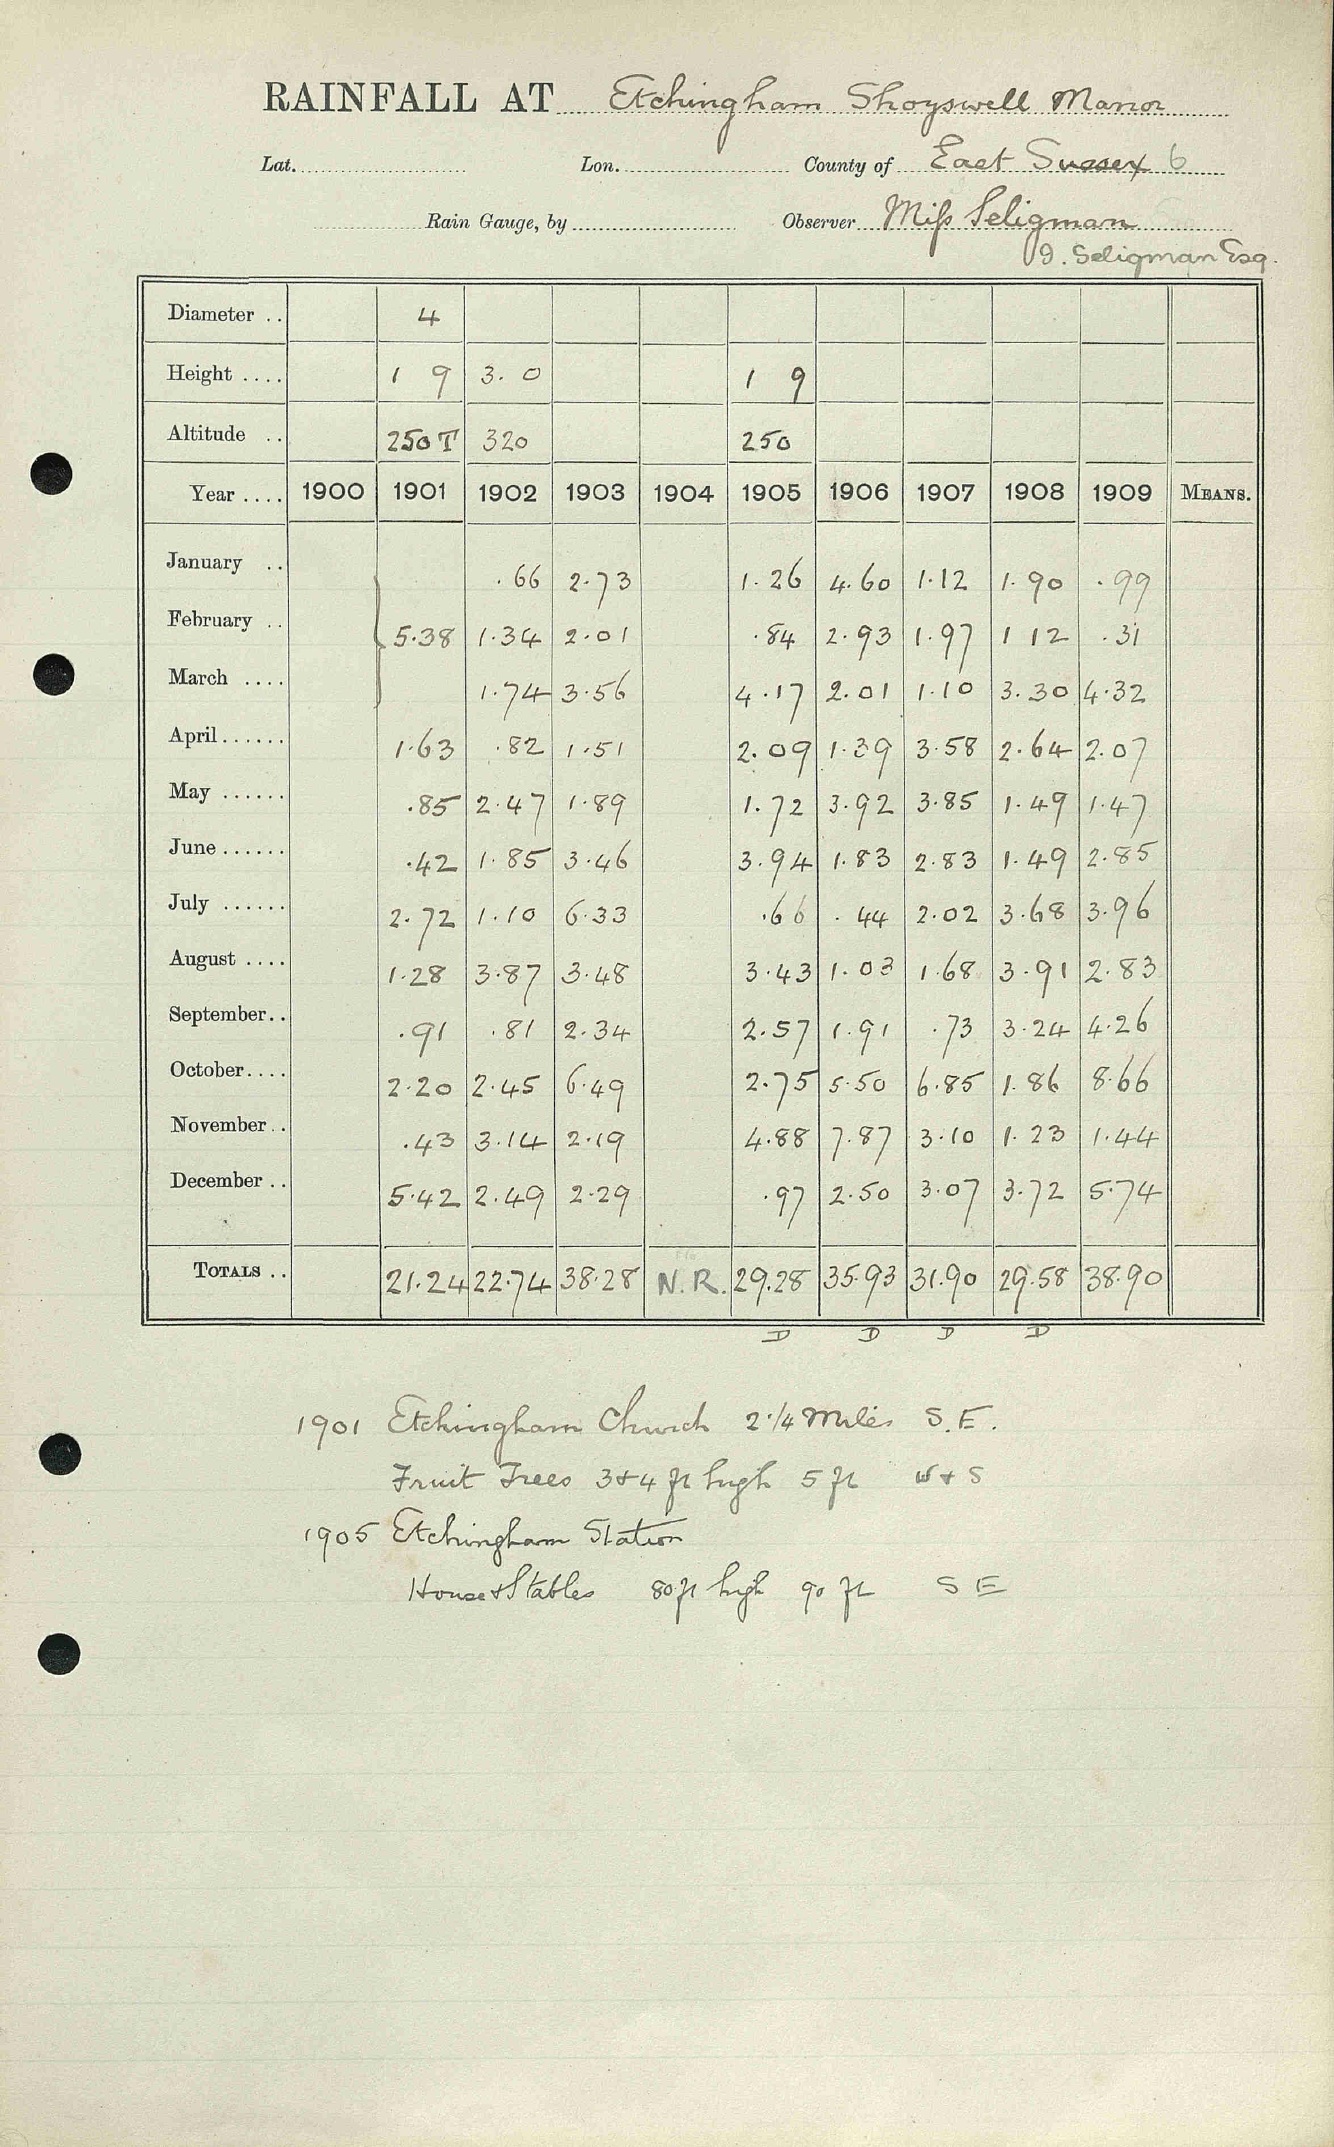 RAINFALL AT Etchingham Shoyswell Manor
Lat. Lon. County of East Sussex 6
Rain Gauge, by Observer Miss Seligman
I. Seligman Esq.
Diameter .. 4
Height .... 1 9 3. 0 1 9
Altitude .. 250 T 320 250
Year .... 1900 1901 1902 1903 1904 1905 1906 1907 1908 1909 MEANS.
January .. .66 2.73 1.26 4.60 1.12 1.90 .99
February .. 5.38 1.34 2.01 .84 2.93 1.97 1 12 .31
March .... 1.74 3.56 4.17 2.01 1.10 3.30 4.32
April...... 1.63 .82 1.51 2.09 1.39 3.58 2.64 2.07
May ...... .85 2.47 1.89 1.72 3.92 3.85 1.49 1.47
June...... .42 1.85 3.46 3.94 1.83 2.83 1.49 2.85
July ...... 2.72 1.10 6.33 .66 .44 2.02 3.68 3.96
August .... 1.28 3.87 3.48 3.43 1.03 1.68 3.91 2.83
September.. .91 .81 2.34 2.57 1.91 .73 3.24 4.26
October.... 2.20 2.45 6.49 2.75 5.50 6.85 1.86 8.66
November.. .43 3.14 2.19 4.88 7.87 3.10 1.23 1.44
December .. 5.42 2.49 2.29 .97 2.50 3.07 3.72 5.74
TOTALS .. 21.24 22.74 38.28 N.R. 29.28 35.93 31.90 29.58 38.90
D D D D
1901 Etchingham Church 2 1/4 Miles S.E.
Fruit Trees 3 & 4 ft high 5 ft W & S
1905 Etchingham Station
House & Stables 80 ft high 90 ft S E